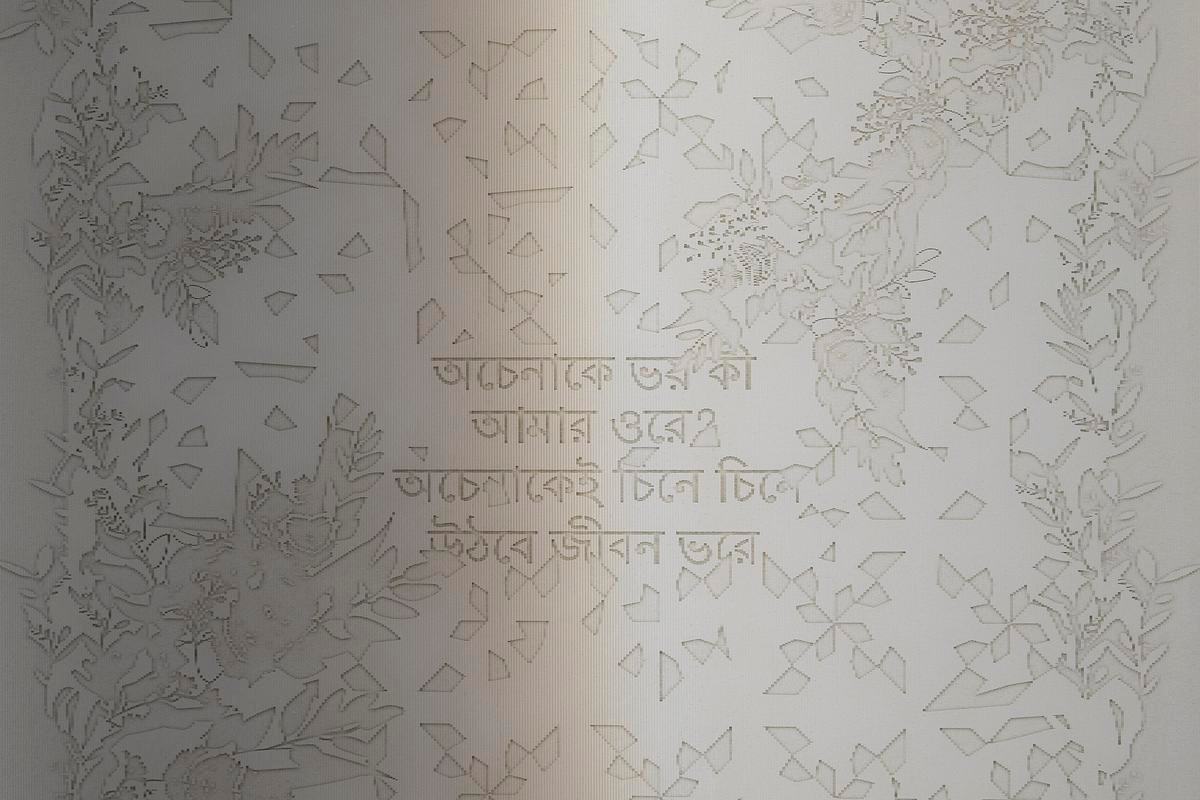 অচেনাকে ভয় কী
আমার ওরে?
অচেনাকেই চিনে চিনে
উঠবে জীবন ভরে